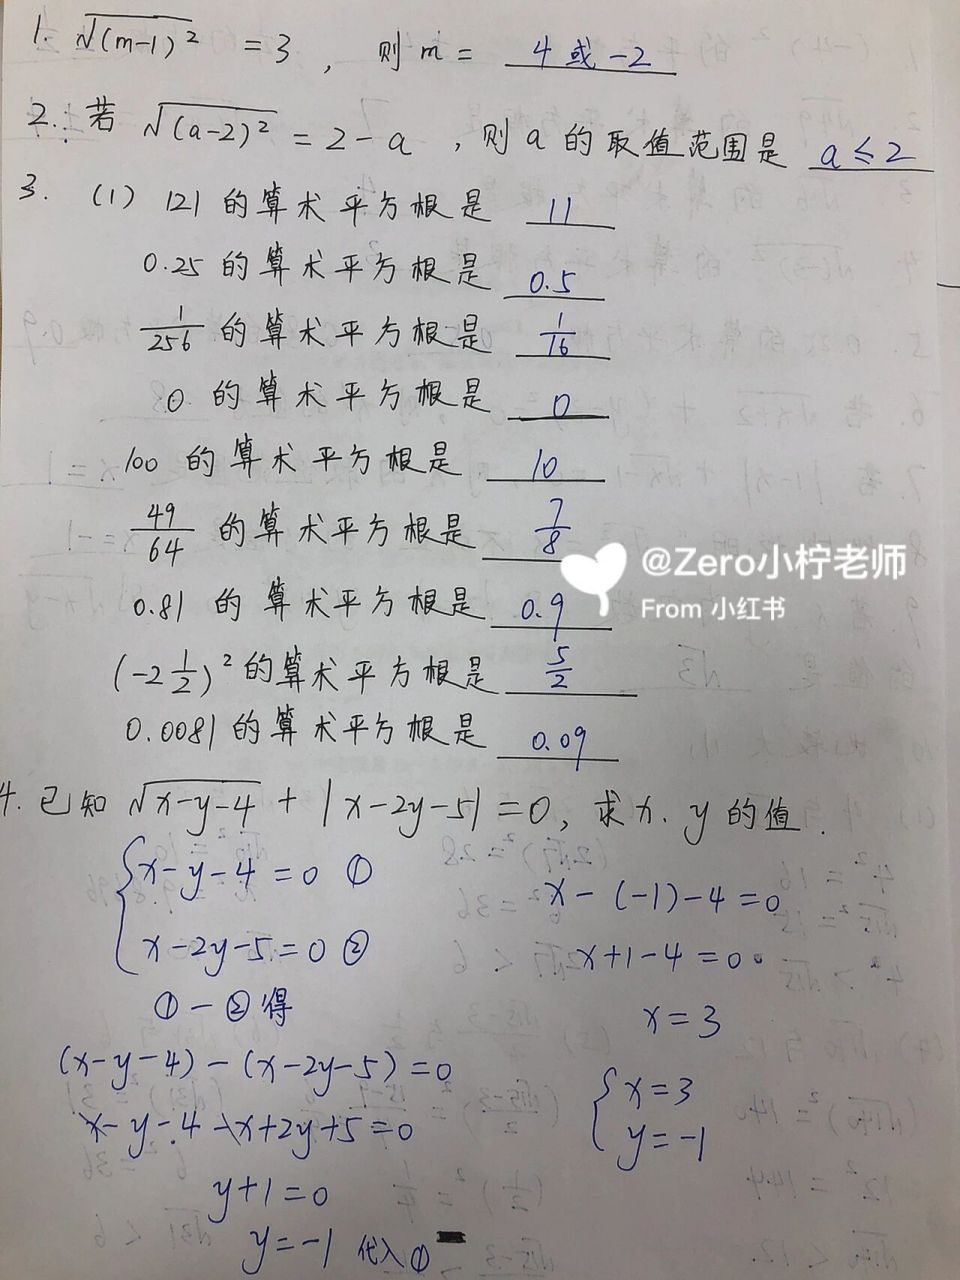 1. √(m-1)² = 3 , 则 m = 4 或 -2
2. 若 √(a-2)² = 2 - a , 则 a 的取值范围是 a ≤ 2
3. (1) 121 的算术平方根是 11
0.25 的算术平方根是 0.5
1/256 的算术平方根是 1/16
0 的算术平方根是 0
100 的算术平方根是 10
49/64 的算术平方根是 7/8
@Zero小柠老师
0.81 的算术平方根是 0.9
From 小红书
(-2 1/2)² 的算术平方根是 5/2
0.0081 的算术平方根是 0.09
4. 已知 √x-y-4 + |x-2y-5| = 0, 求 x. y 的值.
x-y-4 = 0 ①
x-2y-5 = 0 ②
① - ② 得
(x-y-4) - (x-2y-5) = 0
x-y-4-x+2y+5 = 0
y+1 = 0
y = -1 代入①
x - (-1) - 4 = 0
x+1-4 = 0
x = 3
x = 3
y = -1